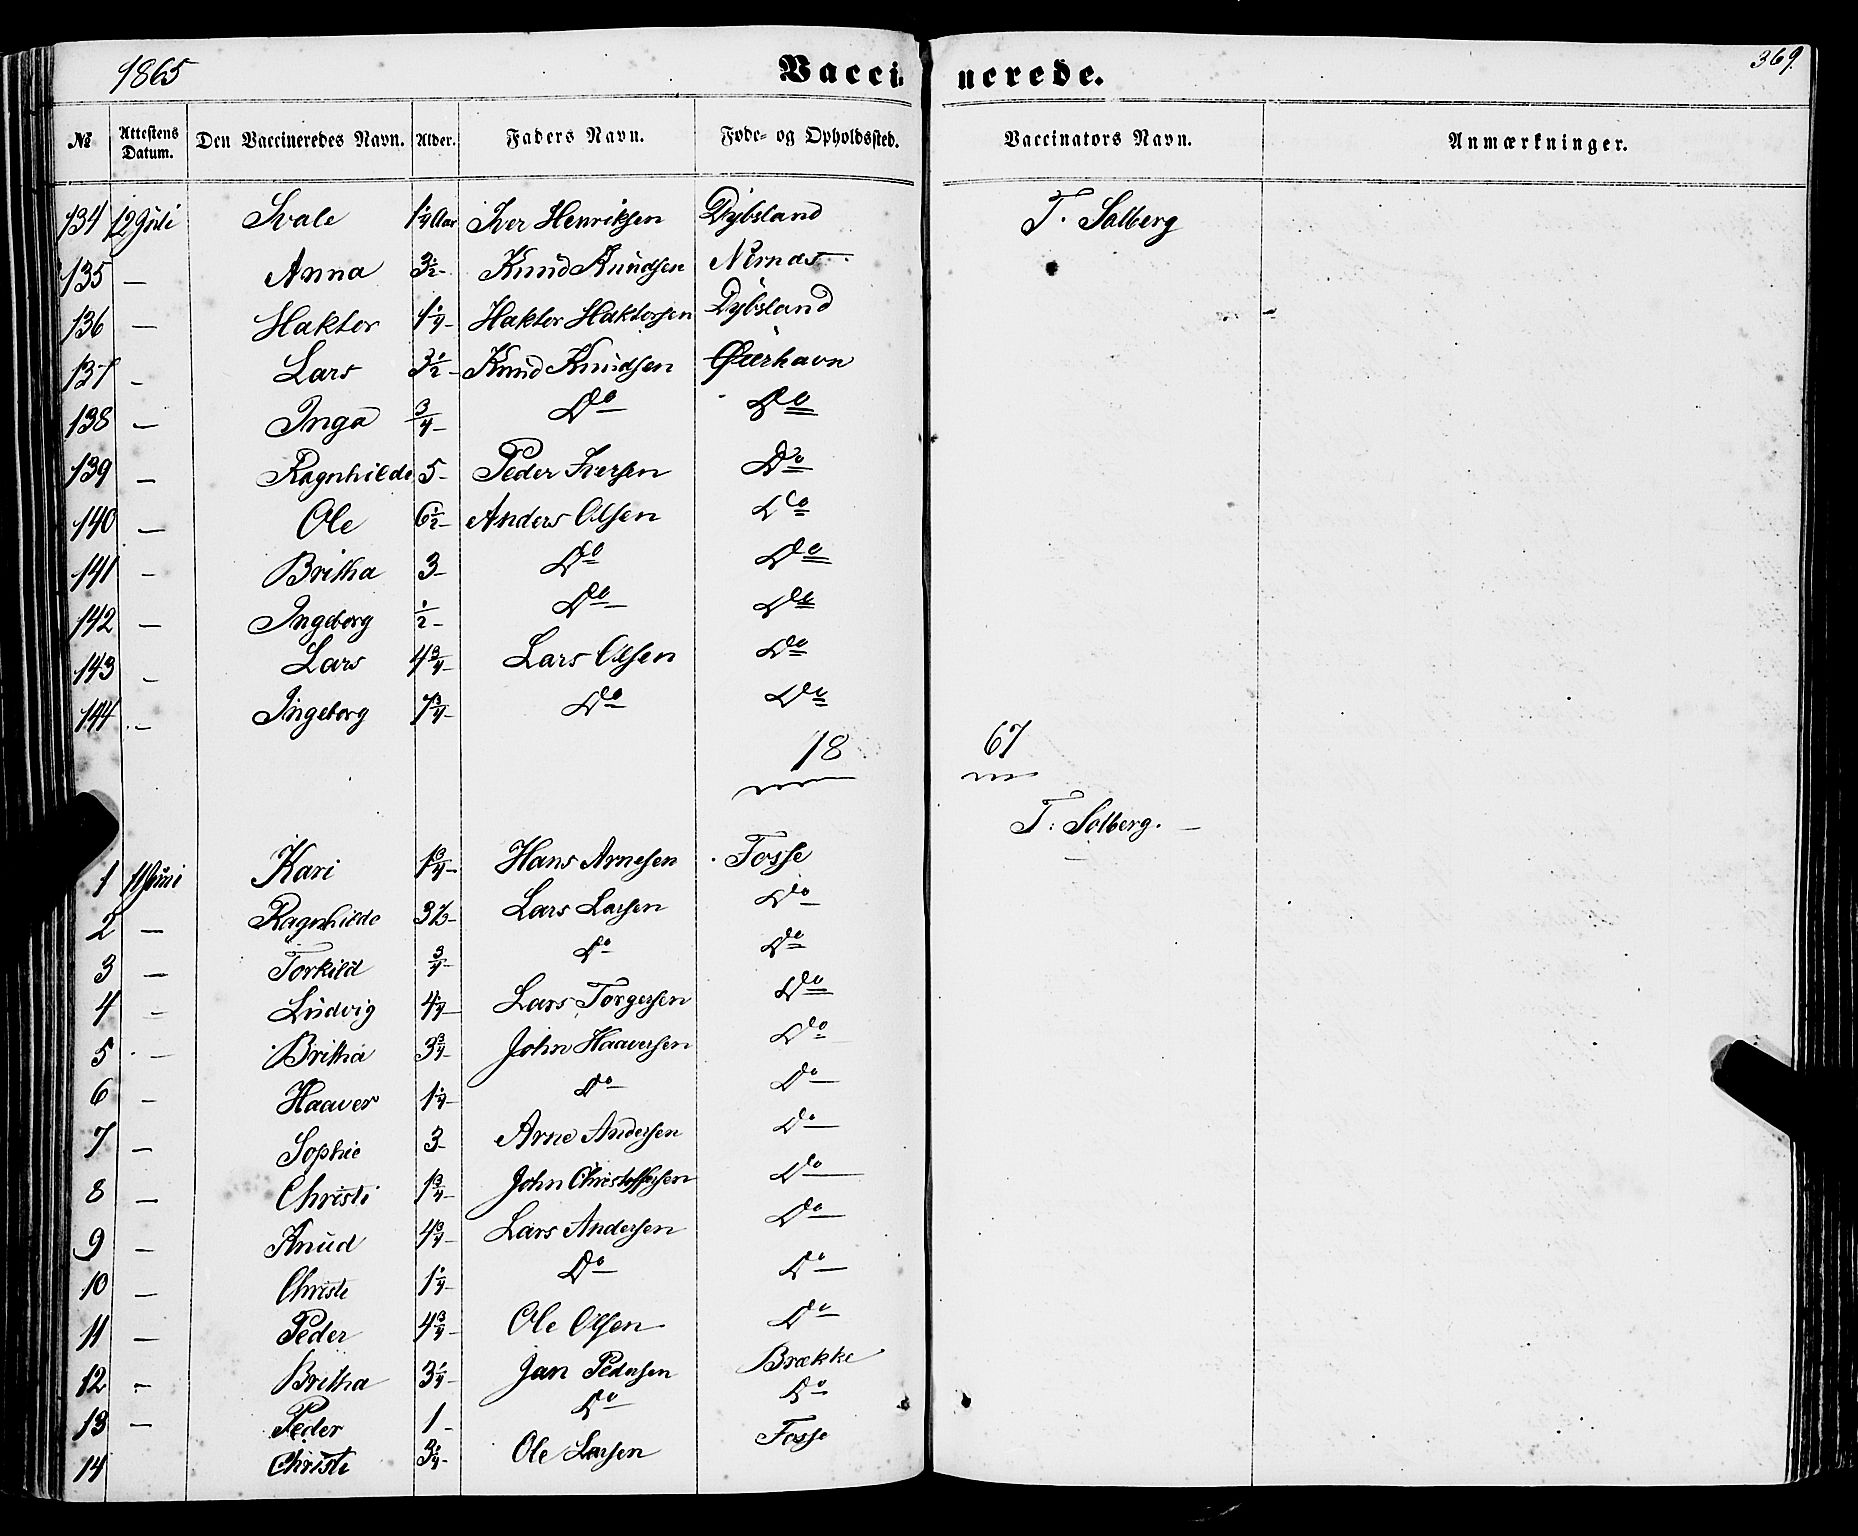 1865 Vaccinerede. 369.
№ Attestens Datum. Den Vaccineredes Navn. Alder. Faders Navn. Føde- og Opholdssted. Vaccinators Navn. Anmærkninger.
134 12 Juli Svale 1 1/4 Aar Iver Henriksen Dybsland T. Solberg
135 — Anna 3 1/2 - Knud Knudsen
136 — Haktor 1 1/4 - Haktor Haktorsen Dybsland
137 - Lars 3 1/2 - Knud Knudsen
138 — Inga 3/4 - Do Do
139 — Ragnhilde 5 - Peder Iversen Do
140 — Ole 6 1/2 - Anders Olsen Do
141 - Britha 3 - Do Do
142 — Ingeborg 1/2 - Do Do
143 - Lars 4 3/4 - Lars Olsen Do
144 - Ingeborg 1 3/4 - Do Do
18 67
T: Solberg. —
1 11 Juni Kari 1 3/4 - Hans Arnesen Fosse
2 — Ragnhilde Lars Larsen Do
3 — Torkild 3/4 - Do Do
4 — Ludvig 4 1/4 - Lars Torgersen Do
5 — Britha 3 3/4 - John Haaversen Do
6 - Haaver 1 1/4 - Do Do
7 — Sophie 3 - Arne Andersen Do
8 — Christi 1 3/4 - John Christoffersen Do
9 — Knud 4 3/4 - Lars Andersen Do
10 — Christi 1 1/4 - Do Do
11 — Peder 4 3/4 - Ole Olsen Do
12 - Britha 3 1/4 - Jan Pedersen Brække
13 — Peder 1 - Do Do
14 Christi 3 1/4 - Ole Larsen Fosse